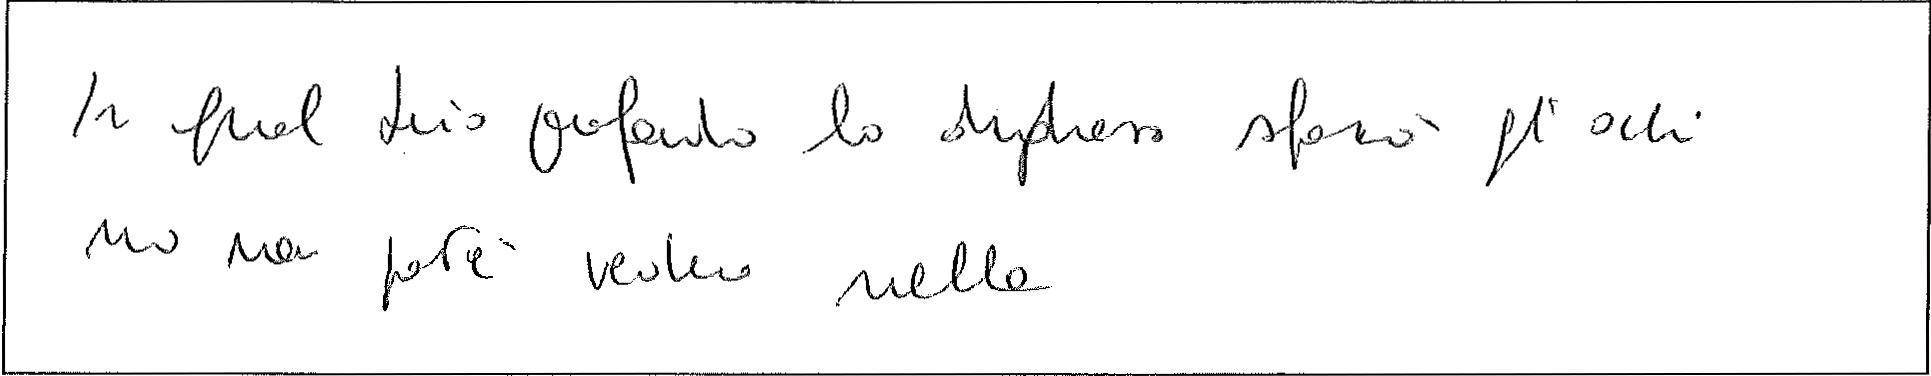 In quel buio profondo lo struzzo sforzò gli occhi
ma non poté vedere nulla